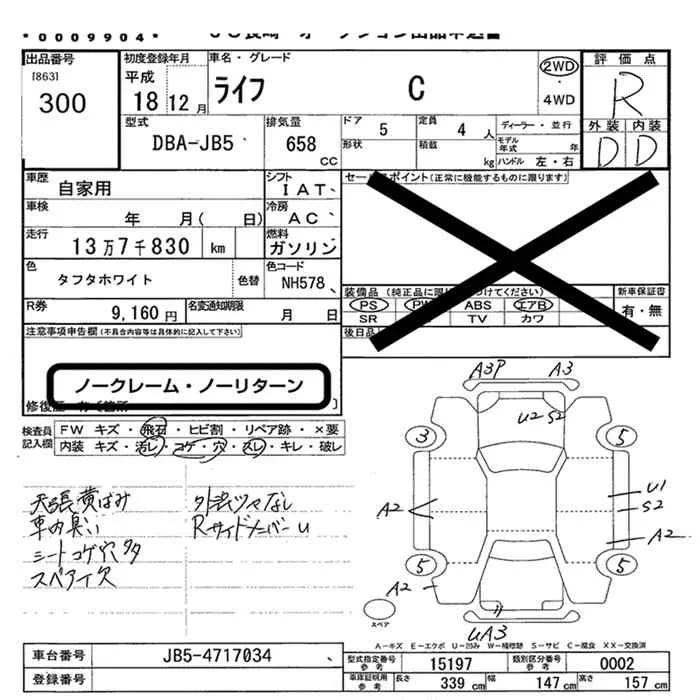 *0009904*
出品番号 初度登録年月 車名・グレード 2WD 評価点
[863] 平成 ライフ C ・ R
300 18 12月 4WD 外装 内装
型式 排気量 ドア 定員 ディーラー・並行 D D
DBA-JB5 658 cc 5 4 人 モデル年式 年
形状 積載 kg ハンドル 左・右
車歴 自家用 シフト IAT、 セールスポイント(正常に機能するものに限ります)
車検 年 月( 日) 冷房 AC、
走行 13万7千830 km 燃料 ガソリン
色 タフタホワイト 色替 色コード NH578、 装備品 (純正品に限 つけてください) 新車保証書
PS PW ABS エアB 有・無
R券 9,160 円 名変通知期限 月 日 SR TV カワ
注意事項申告欄(不具合内容等は具体的に記入して下さい) 後日品
ノークレーム・ノーリターン
修復歴 有 〔箇所 〕
検査員記入欄 FW キズ・飛石・ヒビ割・リペア跡・×要
内装 キズ・汚レ・コゲ・穴・スレ・キレ・破レ
A3P A3
U2 S2
3 5
天張黄ばみ 外装ツヤなし
車内臭い RサイドメンバーU
シートコゲ穴多
スペア欠
A2 U1
S2
A2
5 5
A2
スペア UA3
A-キズ E-エクボ U-凹み W-補修跡 S-サビ C-腐食 XX-交換済
車台番号 JB5-4717034 、 型式指定番号 参考 15197 類別区分番号 参考 0002
登録番号 車庫証明用 参考 長さ 339 cm 幅 147 cm 高さ 157 cm